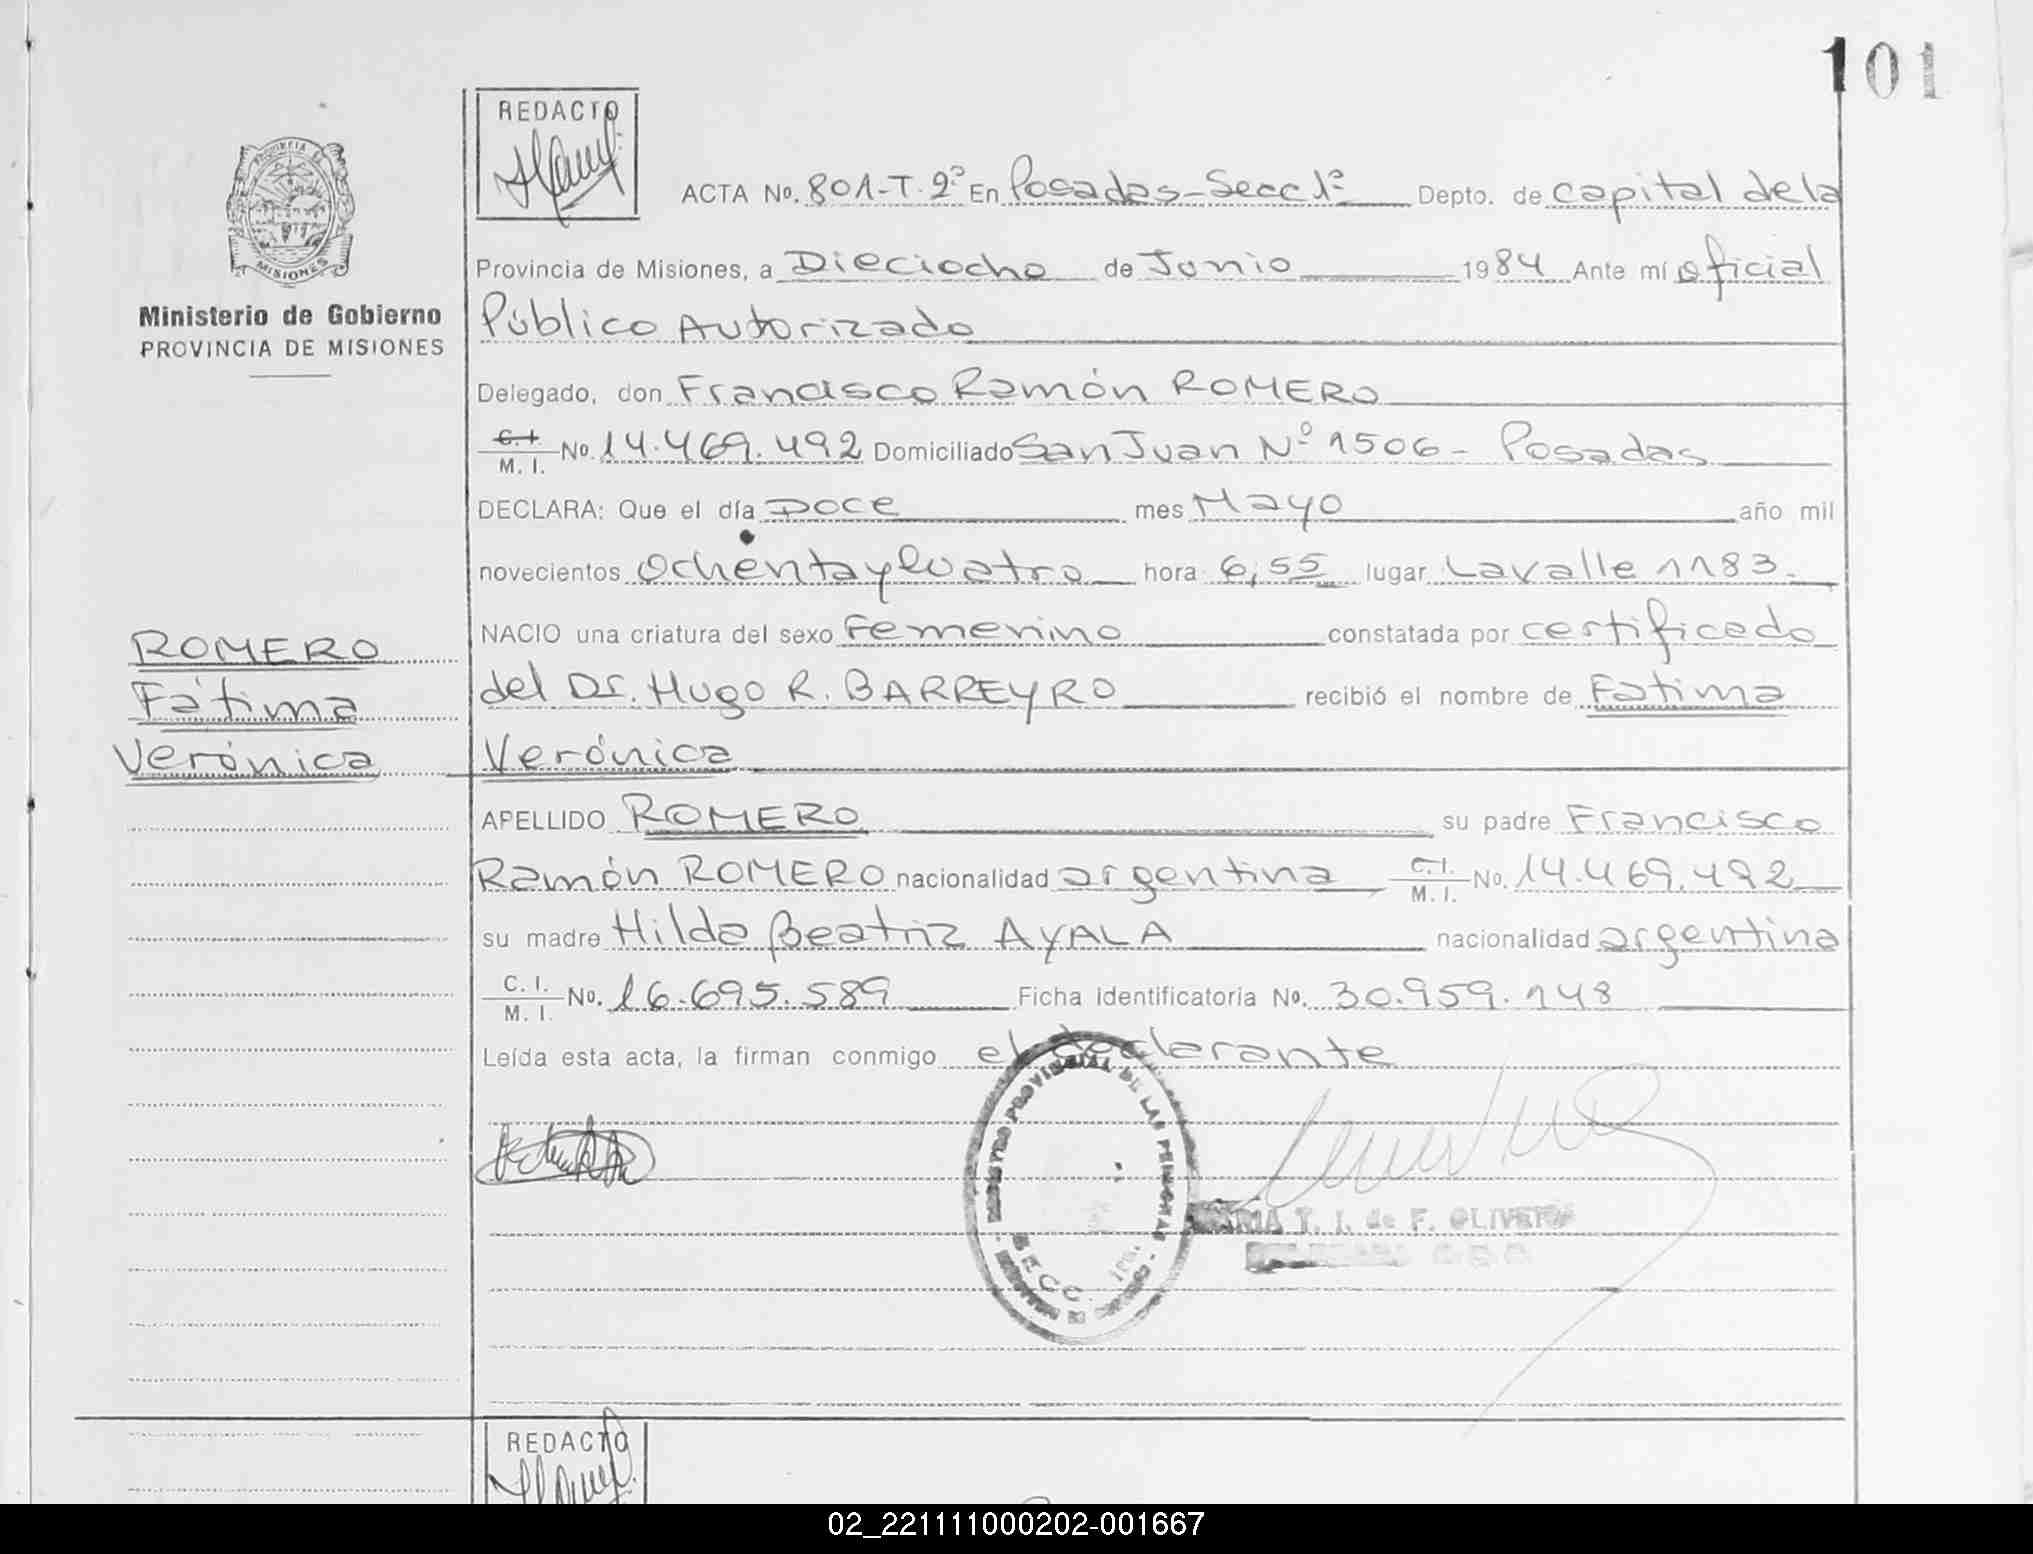 101
REDACTO
PROVINCIA DE
MISIONES
Ministerio de Gobierno
PROVINCIA DE MISIONES
ACTA No. 801-T.2º En Posadas-Secc 1ª Depto. de capital de la
Provincia de Misiones, a Dieciocho de Junio 1984 Ante mí oficial
Público Autorizado
Delegado, don Francisco Ramón ROMERO
C.I. M. I. No. 14.469.492 Domiciliado San Juan Nº 1506- Posadas
DECLARA: Que el día DOCE mes Mayo año mil
novecientos Ochenta y Cuatro hora 6,55 lugar Lavalle 1183.
NACIO una criatura del sexo Femenino constatada por certificado
del Dr. Hugo R. BARREYRO recibió el nombre de Fatima
Verónica
ROMERO
Fátima
Verónica
APELLIDO ROMERO su padre Francisco
Ramón ROMERO nacionalidad argentina C.I. M. I. No. 14.469.492
su madre Hilda Beatriz AYALA nacionalidad argentina
C. I. M. I. No. 16.695.589 Ficha Identificatoria No. 30.959.148
Leída esta acta, la firman conmigo el declarante
REGISTRO PROVINCIAL DE LAS PERSONAS
SECC. 1ra.
T. I. de F. OLIVEIRA
REDACTO
02_221111000202-001667